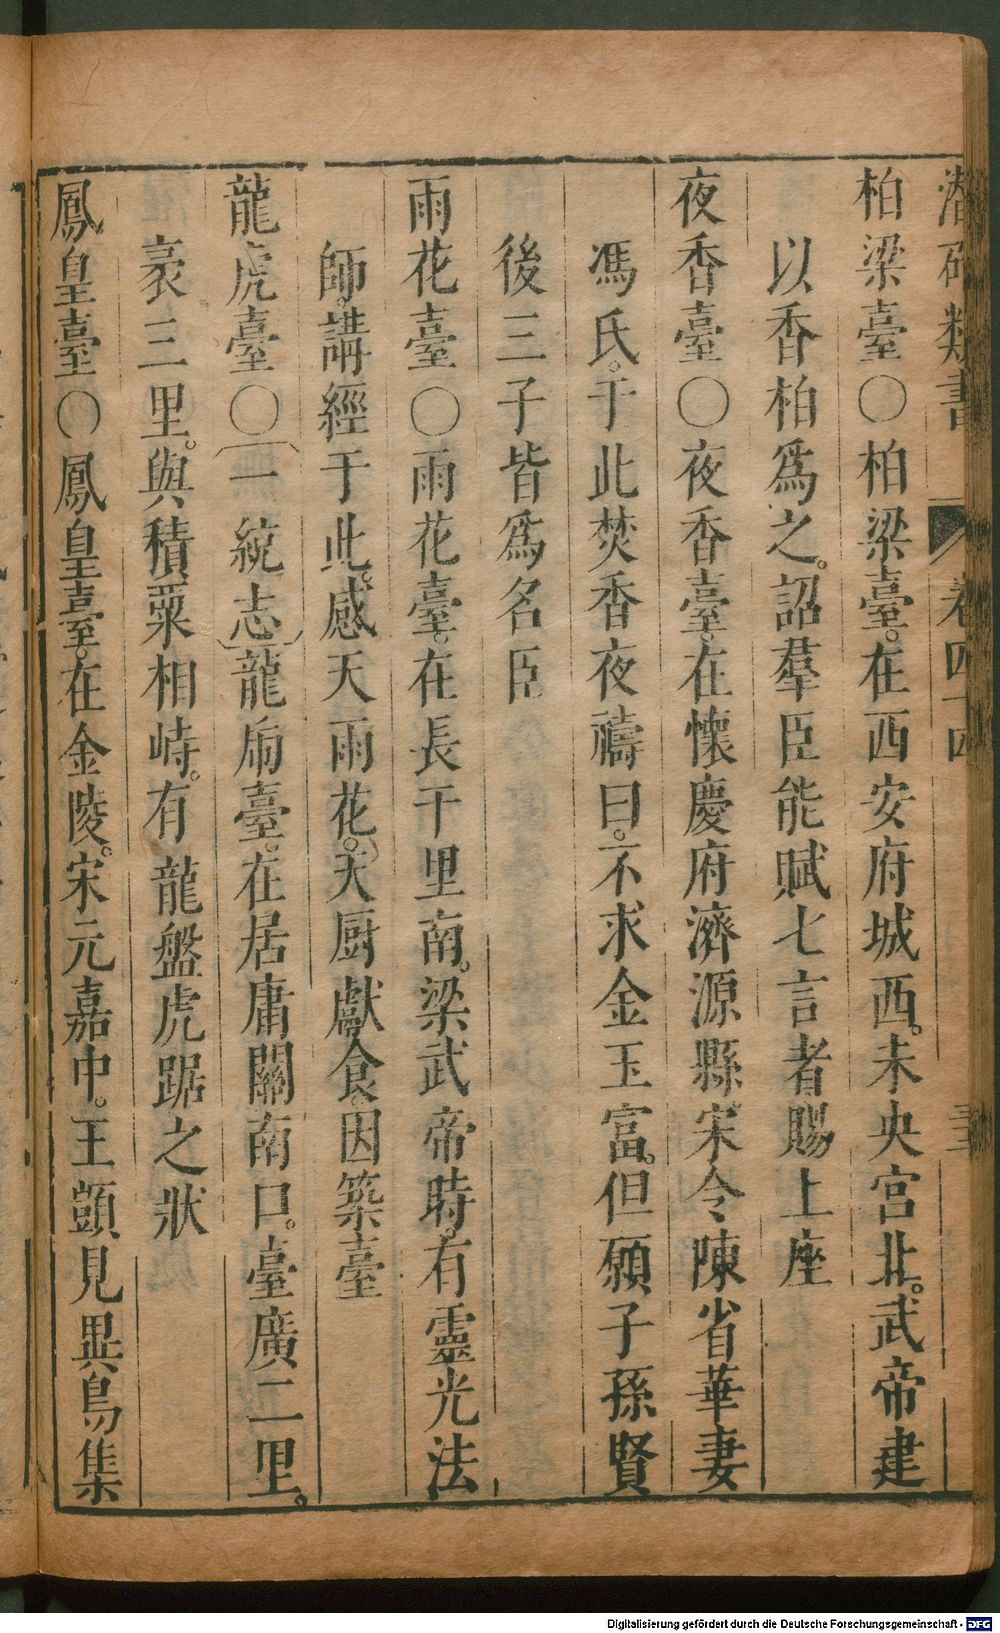 潛確類書 卷四十四 三
柏梁臺○柏梁臺。在西安府城西。未央宮北。武帝建
以香柏爲之。詔羣臣能賦七言者賜上座
夜香臺○夜香臺。在懷慶府濟源縣。宋令陳省華妻
馮氏。于此焚香夜禱曰。不求金玉富。但願子孫賢
後三子皆爲名臣
雨花臺○雨花臺。在長干里南。梁武帝時。有靈光法
師。講經于此。感天雨花。天厨獻食。因築臺
龍虎臺○一統志龍虎臺。在居庸關南口。臺廣二里。
袤三里。與積粟相峙。有龍盤虎踞之狀
鳳皇臺○鳳皇臺。在金陵。宋元嘉中。王顗見異鳥集
Digitalisierung gefördert durch die Deutsche Forschungsgemeinschaft - DFG